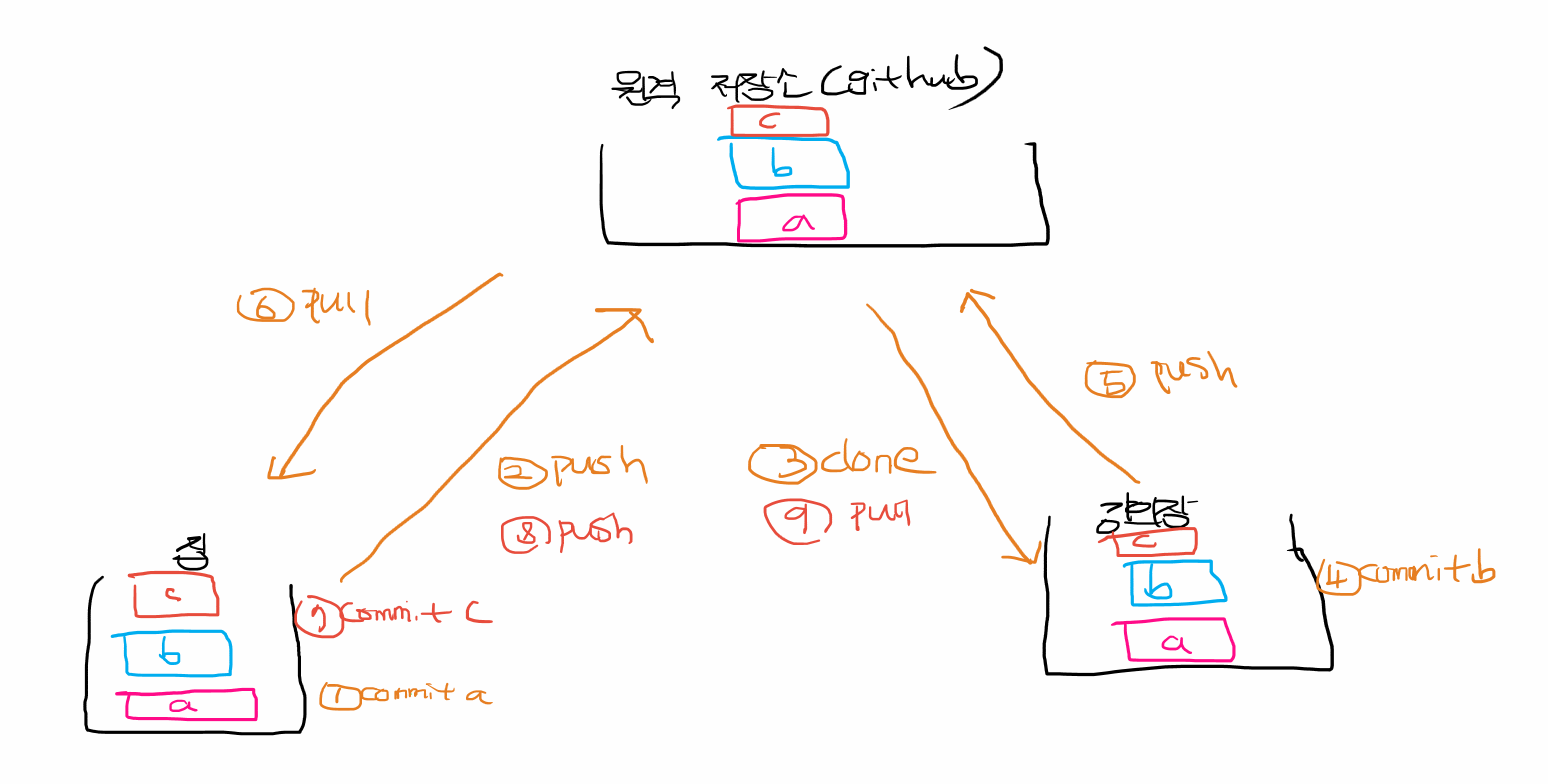 원격 저장소(github)
c
b
a
⑥ pull
⑤ push
② push
③ clone
⑧ push
⑨ pull
집
강의장
c
b
a
⑦ commit c
① commit a
c
b
a
④ commit b